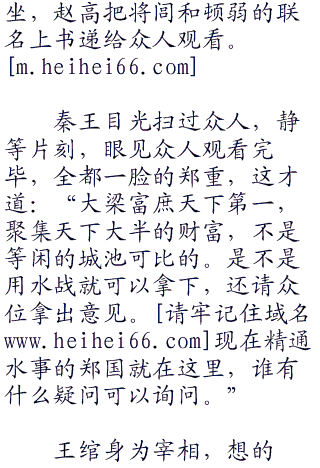 坐，赵高把将闾和顿弱的联
名上书递给众人观看。
[m.heihei66.com]
秦王目光扫过众人，静
等片刻，眼见众人观看完
毕，全都一脸的郑重，这才
道：“大梁富庶天下第一，
聚集天下大半的财富，不是
等闲的城池可比的。是不是
用水战就可以拿下，还请众
位拿出意见。[请牢记住域名
www.heihei66.com]现在精通
水事的郑国就在这里，谁有
什么疑问可以询问。”
王绾身为宰相，想的